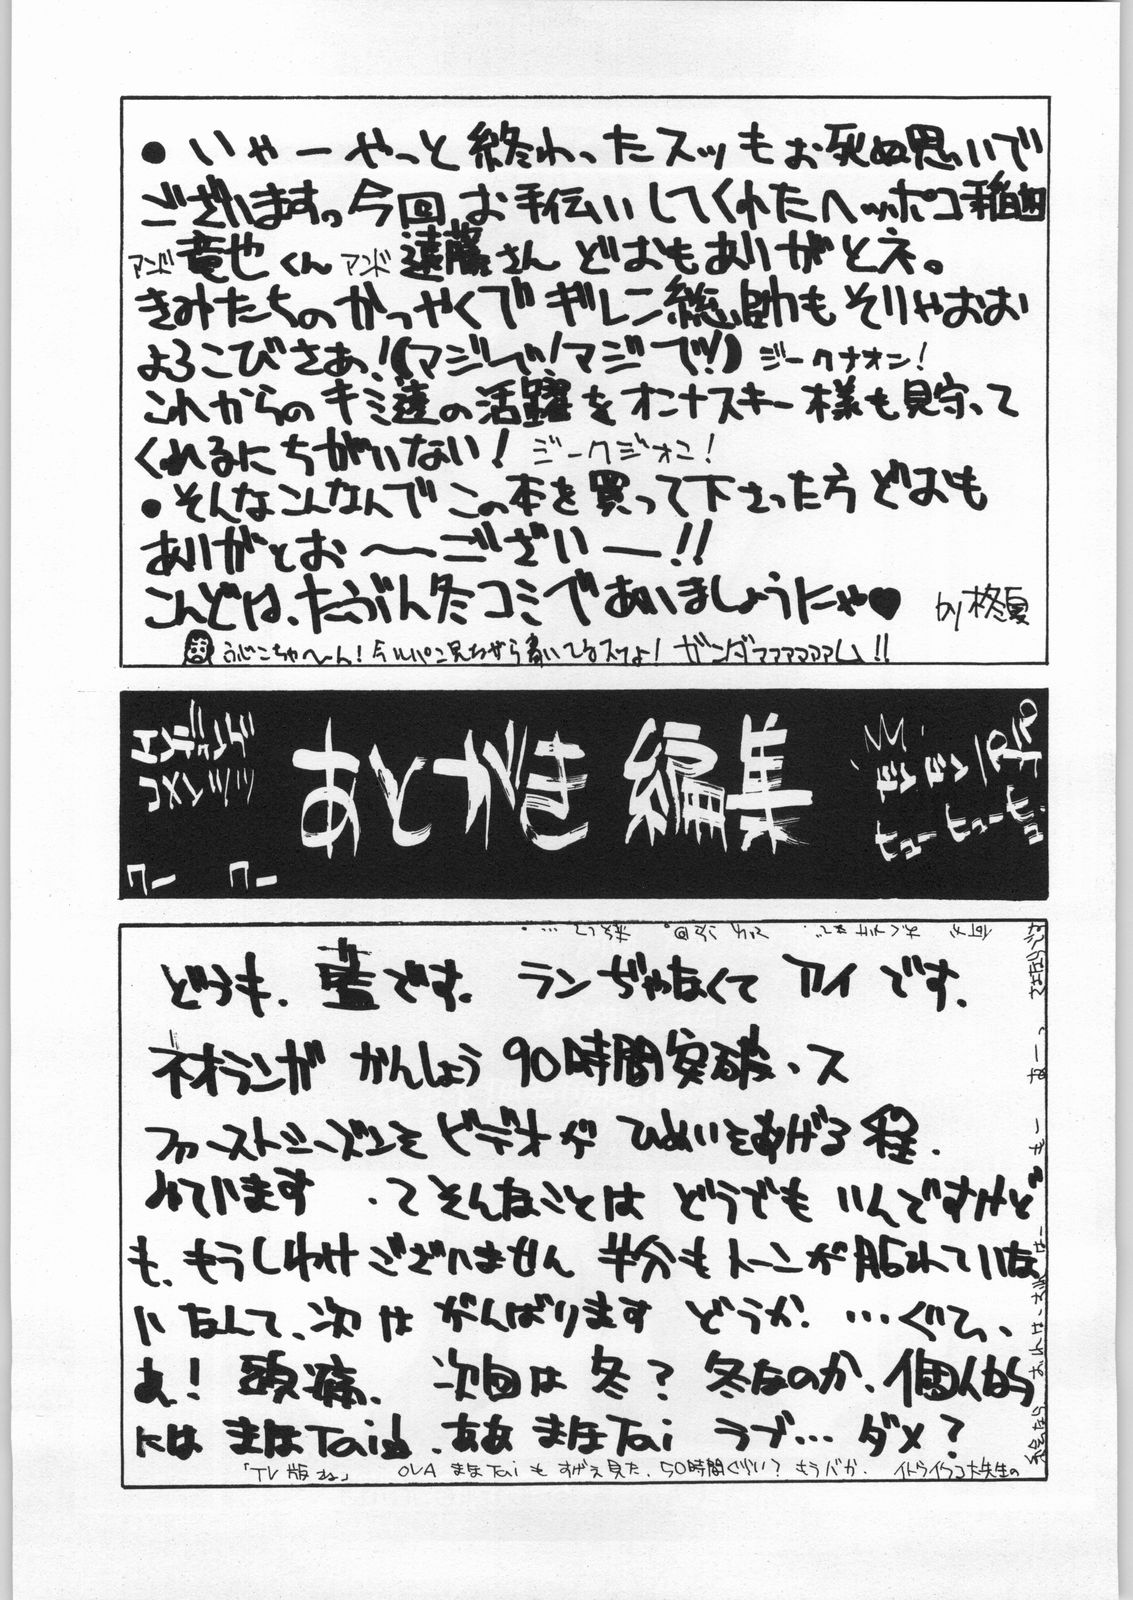 ●いやーやっと終わったスッもお死ぬ思いで
ございますっ今回お手伝いしてくれたヘッポコ稲田
アンド竜也くんアンド遠藤さんどおもありがとネ。
きみたちのかつやくでギレン総帥もそりゃおお
よろこびさぁ!(マジで!マジで!)ジークナオン!
これからのキミ達の活躍をオンナスキー様も見守って
くれるにちがいない!ジークジオン!
●そんなこんなんでこの本を買って下さった方どおも
ありがとお〜ございー!!
こんどは、たぶん冬コミであいましょうにゃ♥ by柊夏
ふじこちゃ〜ん!今ルパン見ながら書いてるスヨ! ガンダァァァァァム!!
エンディング
コメンツツツ
ワー ワー
あとがき編集
ドンドン パフパフ
ヒューヒューヒュー
どうも、藍です。ランぢゃなくてアイです。
ネオランガかんしょう90時間突破、ス
ファーストシーズンをビデオがひめいをあげる程、
みています。てそんなことはどうでもいんですけど
も、もうしわけございません半分もトーンが貼れていな
いなんて、次はがんばります どうか…ぐてっ、
あ!頭痛、次回は冬?冬なのか、個人的
にはまほTai!、ああまほTaiラブ…ダメ?
「TV版ね」 OVAまほTaiもすげぇ見た、50時間ぐらい?もうバか、